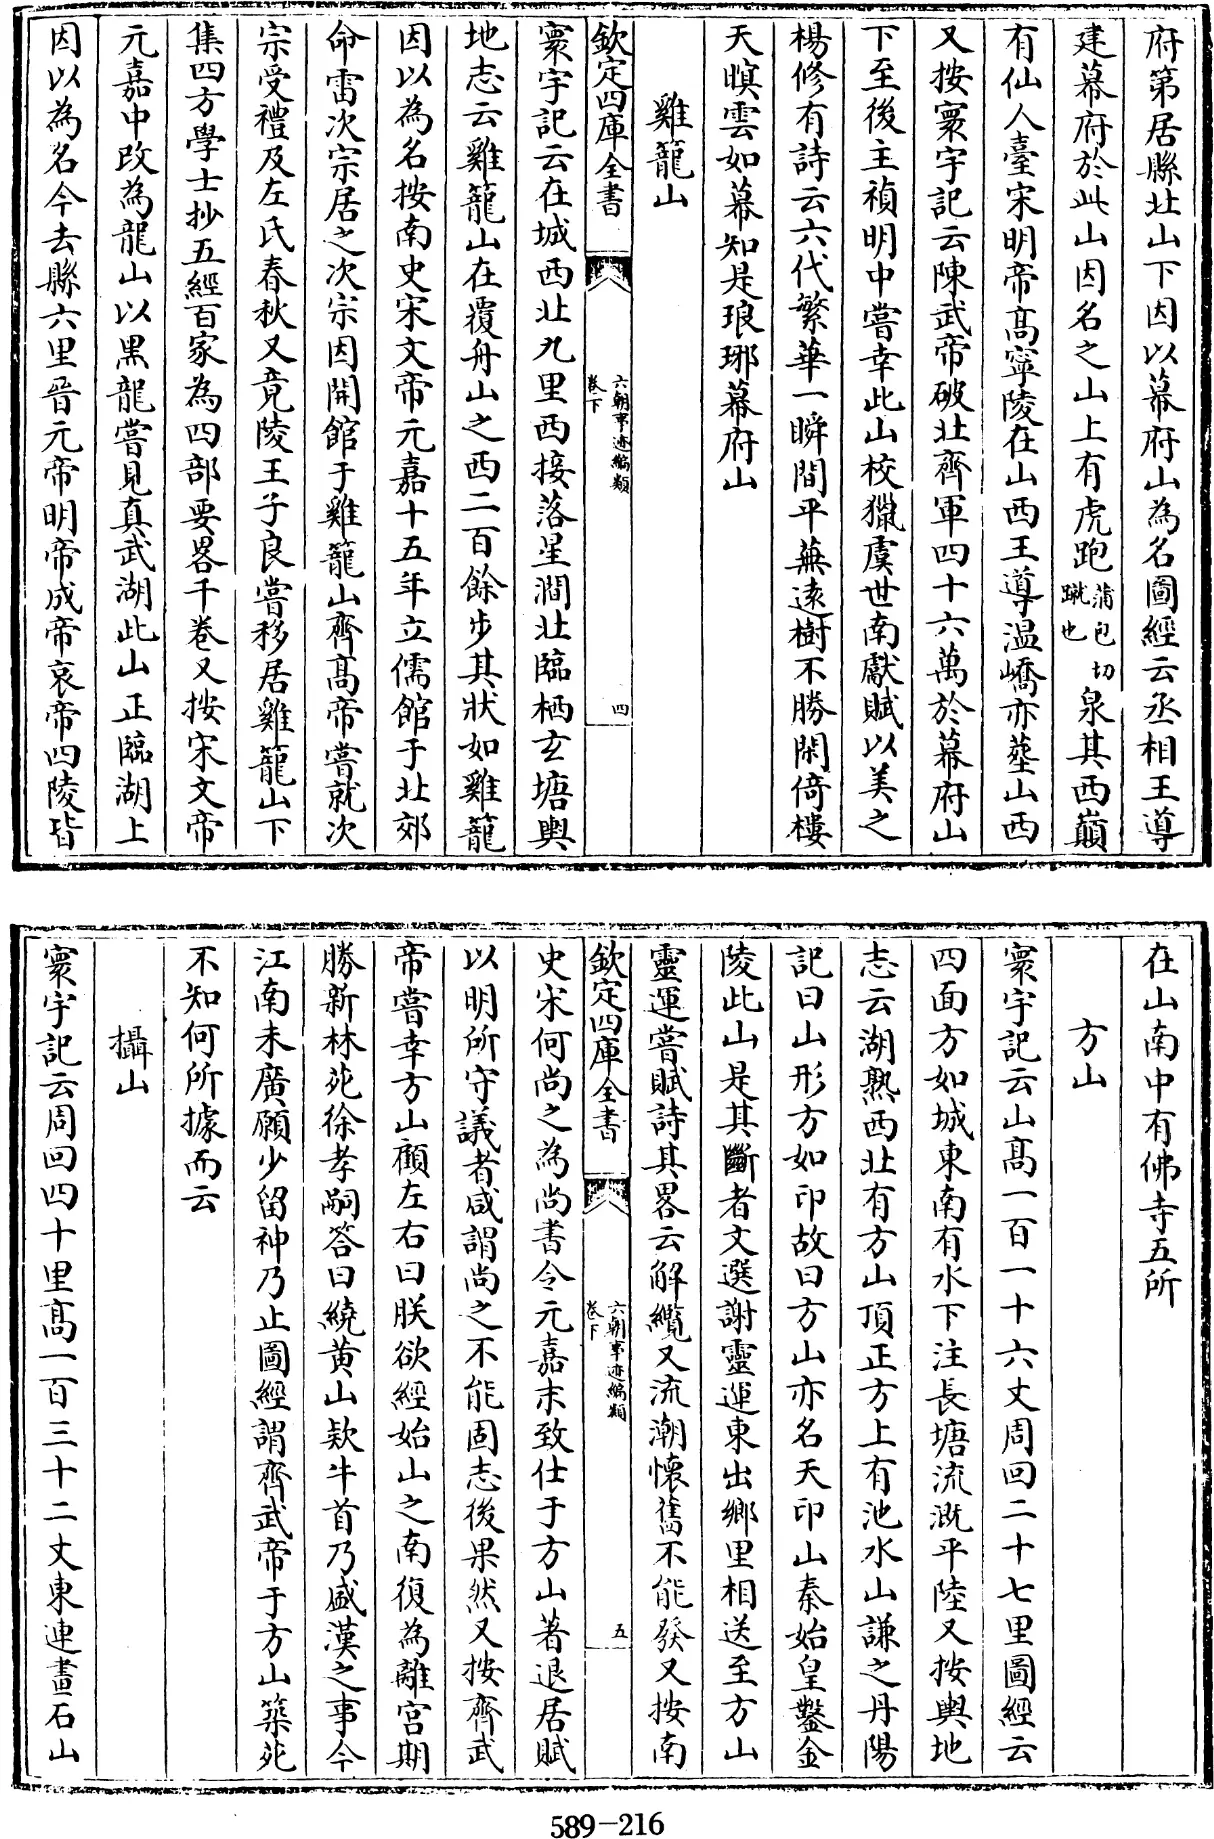 府第居縣北山下因以幕府山為名圖經云丞相王導
建幕府於此山因名之山上有虎跑蒲包切蹴也泉其西巔
有仙人臺宋明帝髙寧陵在山西王導温嶠亦塟山西
又按寰宇記云陳武帝破北齊軍四十六萬於幕府山
下至後主禎明中嘗幸此山校獵虞世南獻賦以美之
楊修有詩云六代繁華一瞬間平蕪遠樹不勝閑倚樓
天暝雲如幕知是琅琊幕府山
雞籠山
欽定四庫全書 六朝事迹編類卷下 四
寰宇記云在城西北九里西接落星澗北臨栖玄塘輿
地志云雞籠山在覆舟山之西二百餘步其狀如雞籠
因以為名按南史宋文帝元嘉十五年立儒館于北郊
命雷次宗居之次宗因開館于雞籠山齊髙帝嘗就次
宗受禮及左氏春秋又竟陵王子良嘗移居雞籠山下
集四方學士抄五經百家為四部要畧千卷又按宋文帝
元嘉中改為龍山以黒龍嘗見真武湖此山正臨湖上
因以為名今去縣六里晉元帝明帝成帝哀帝四陵皆
在山南中有佛寺五所
方山
寰宇記云山髙一百一十六丈周回二十七里圖經云
四面方如城東南有水下注長塘流溉平陸又按輿地
志云湖熟西北有方山頂正方上有池水山謙之丹陽
記曰山形方如印故曰方山亦名天印山秦始皇鑿金
陵此山是其斷者文選謝靈運東出鄉里相送至方山
靈運嘗賦詩其畧云解纜又流潮懷舊不能發又按南
欽定四庫全書 六朝事迹編類卷下 五
史宋何尚之為尚書令元嘉末致仕于方山著退居賦
以明所守議者咸謂尚之不能固志後果然又按齊武
帝嘗幸方山顧左右曰朕欲經始山之南復為離宫期
勝新林苑徐孝嗣答曰繞黄山欵牛首乃盛漢之事今
江南未廣願少留神乃止圖經謂齊武帝于方山築苑
不知何所據而云
攝山
寰宇記云周回四十里髙一百三十二丈東連畫石山
589-216